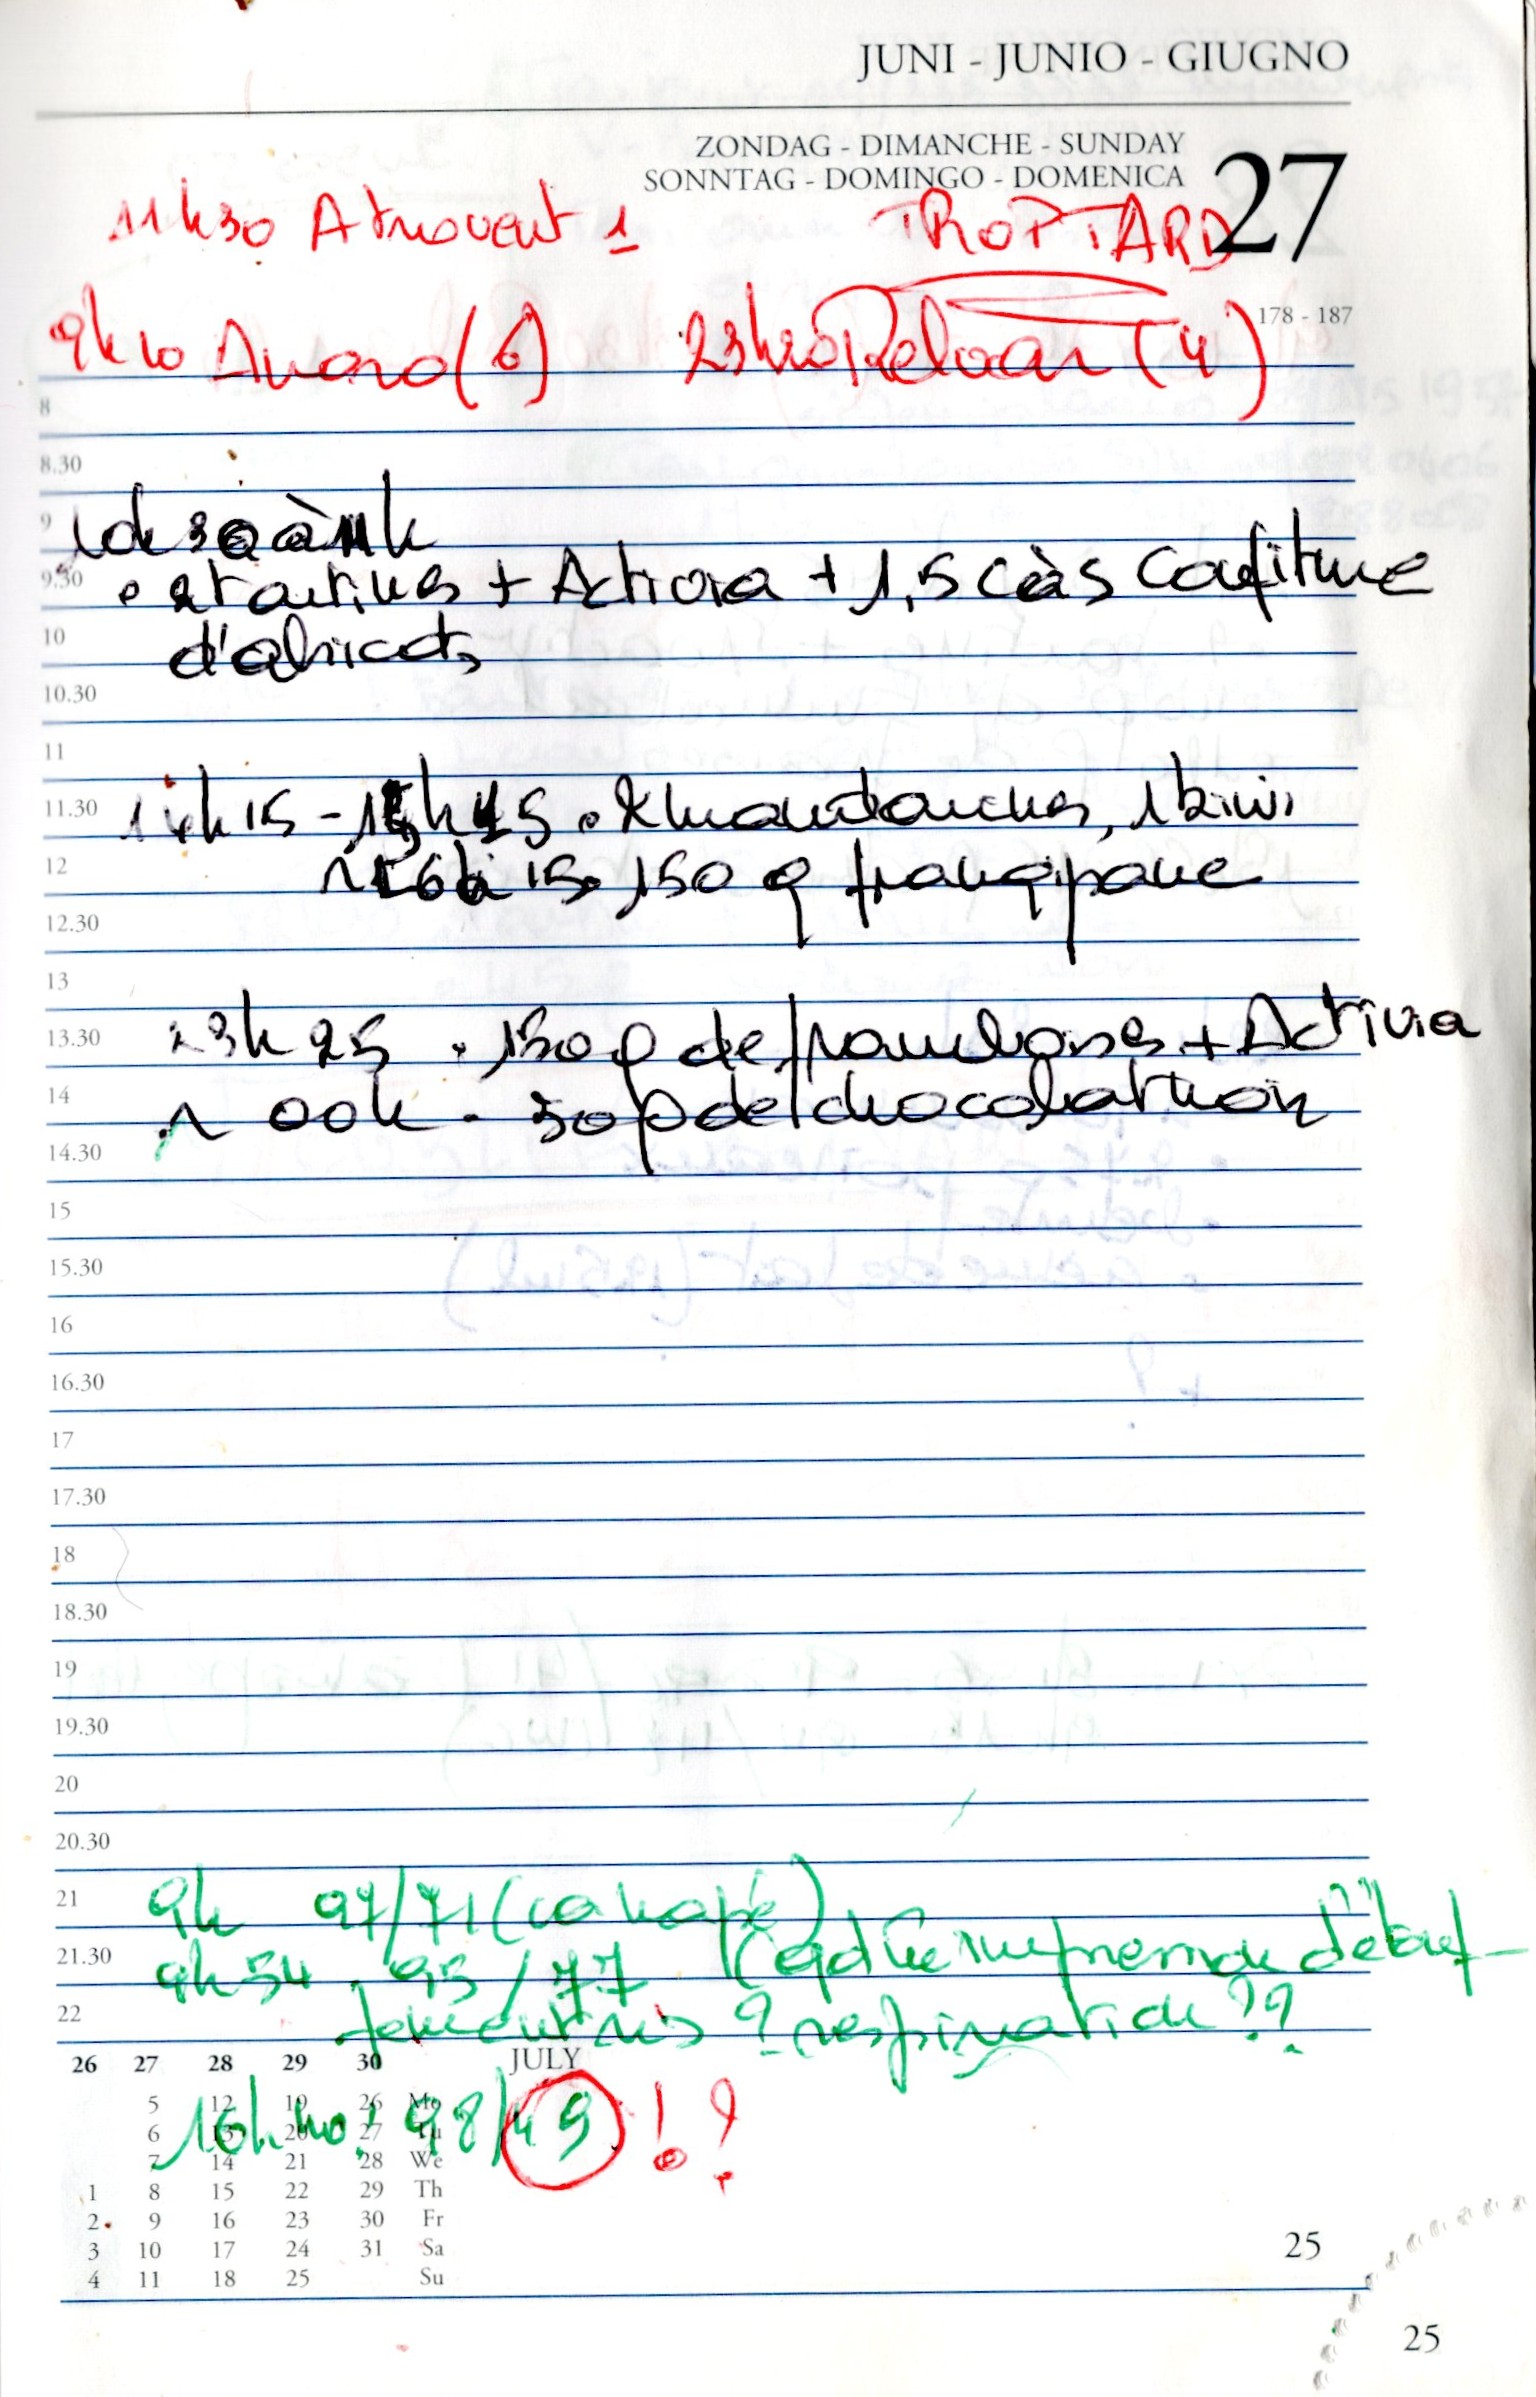 JUNI - JUNIO - GIUGNO
ZONDAG - DIMANCHE - SUNDAY
SONNTAG - DOMINGO - DOMENICA
27
11h30 Atrovent 1 TROP TARD
178 - 187
9h10 Anoro (6) 23h20 Relvar (4)
8
8.30
9
10h30 à 11h
9.30
• 2 tartines + Activia + 1,5 c à s confiture
10
d'abricots
10.30
11
11.30
14h15 - 15h45 • 2 mandarines, 1 kiwi
12
~ 16h15 • 150 g frangipane
12.30
13
13.30
23h25 • 150 g de framboises + Activia
14
~ 00h • 50 g de chocolat noir
14.30
15
15.30
16
16.30
17
17.30
18
18.30
19
19.30
20
20.30
21
9h 97/71 (canapé)
21.30
9h54 . 95/77
22
respiration ??
26 27 28 29 30 JULY
5 12 19 26 Mo
6 13 20 27 Tu
7 14 21 28 We
16h40 : 98/49 ! ?
1 8 15 22 29 Th
2 9 16 23 30 Fr
3 10 17 24 31 Sa
4 11 18 25 Su
25
25